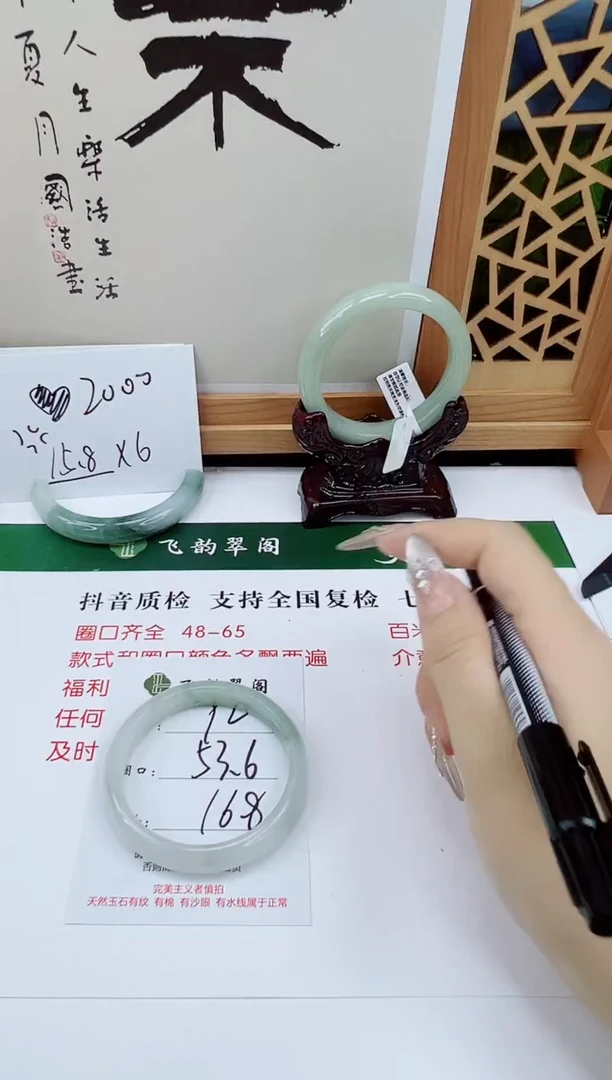 人生樂活生活
夏月
2000
15.8 X6
飞韵翠阁
抖音质检 支持全国复检 七
圈口齐全 48-65
百米
款式和圈口颜色多飘两遍
介意
福利
任何
及时
飞韵翠阁
12
口: 53.6
168
完美主义者慎拍
天然玉石有纹 有棉 有沙眼 有水线属于正常